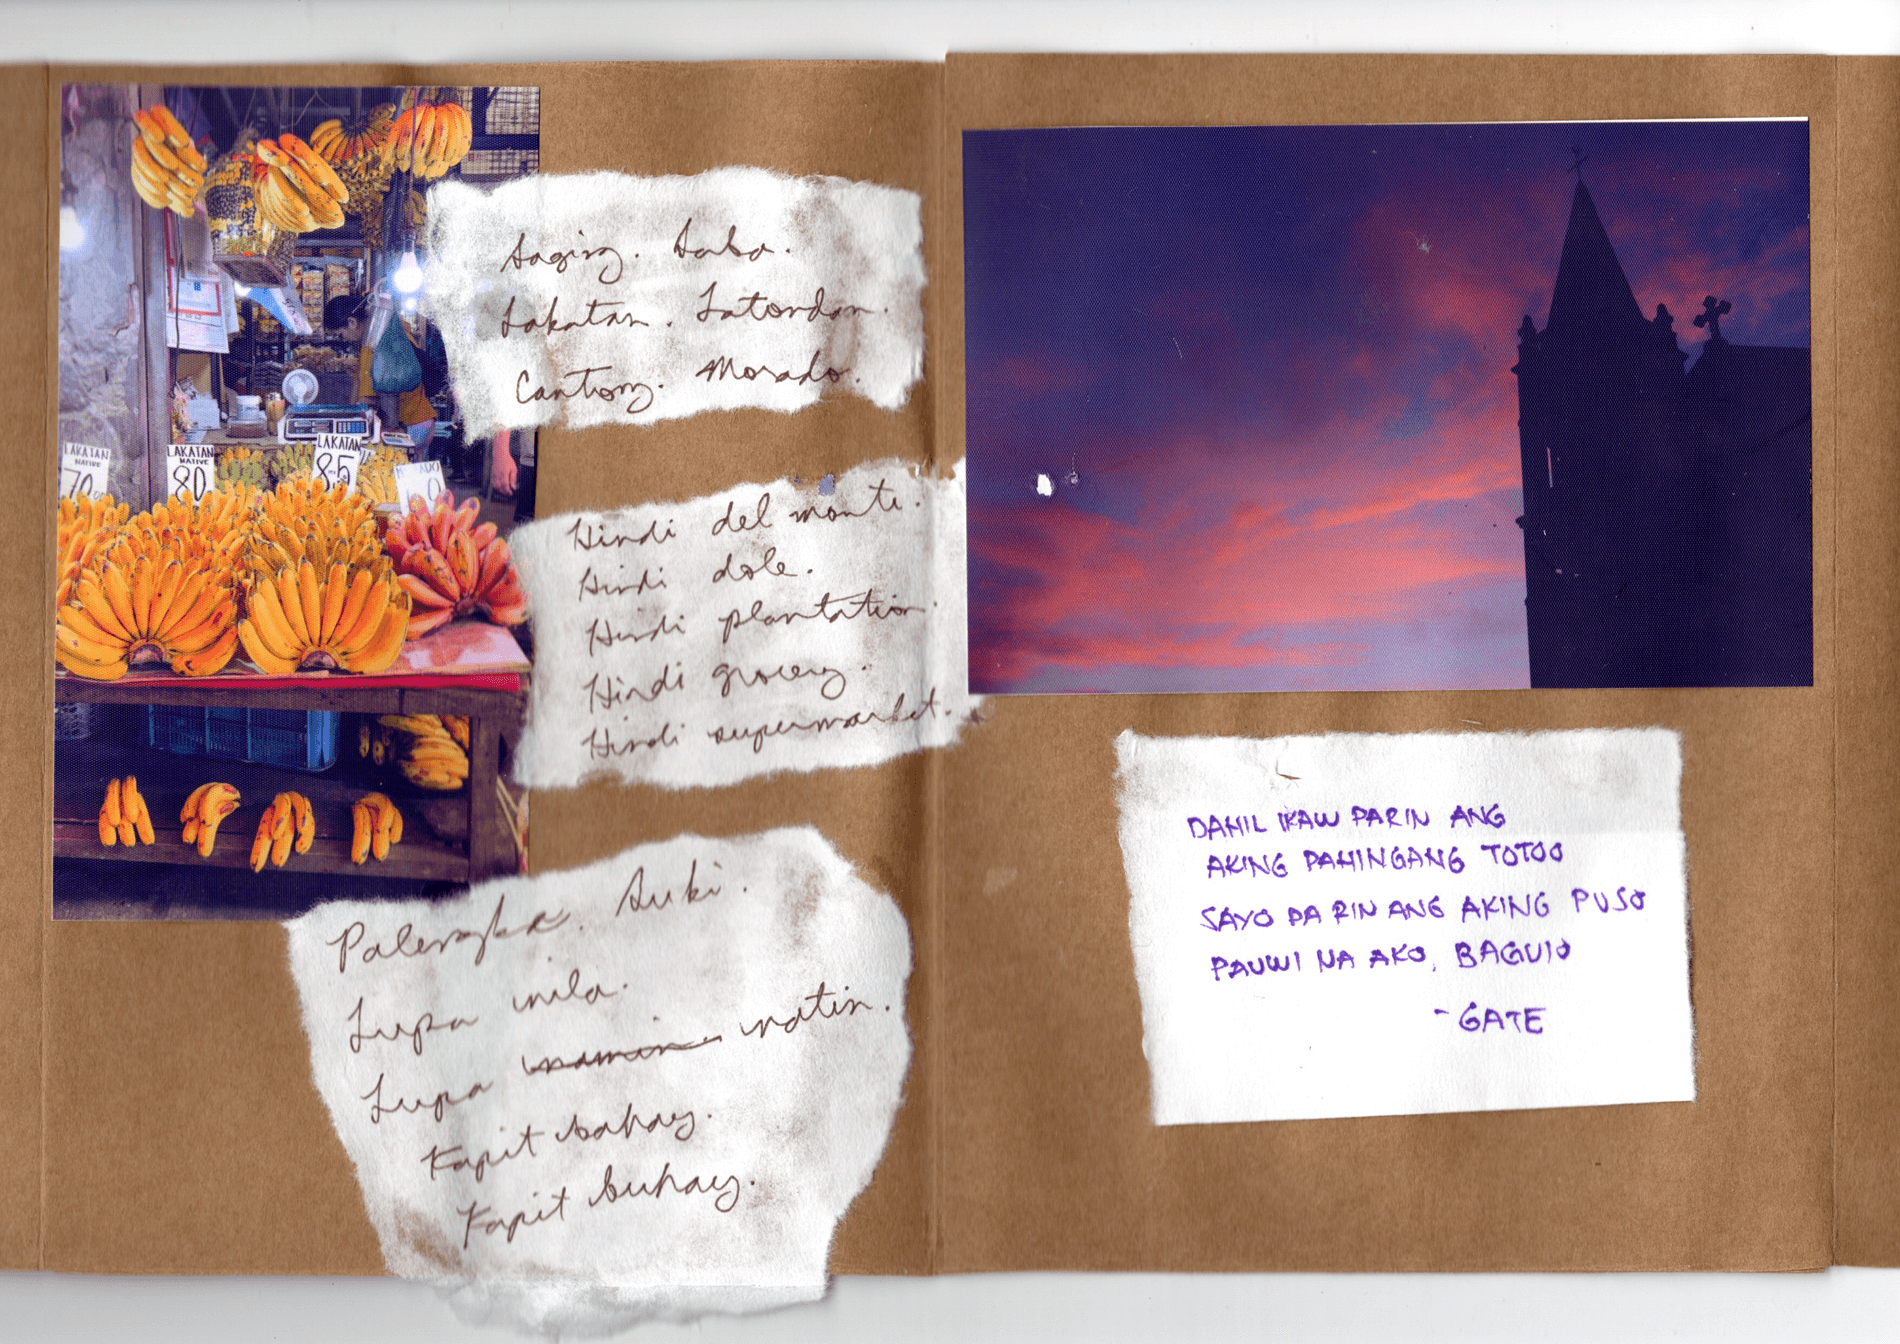 LAKATAN
NATIVE
70
LAKATAN
NATIVE
80
LAKATAN
85
ADO
0
Saging. Saba.
Lakatan. Latondan.
Cantong. Morado.
Hindi del monte.
Hindi dole.
Hindi plantation.
Hindi grocery.
Hindi supermarket.
Palengke. Suki.
Lupa nila.
Lupa namin. natin.
Kapit bahay.
Kapit buhay.
DAHIL IKAW PARIN ANG
AKING PAHINGANG TOTOO
SAYO PA RIN ANG AKING PUSO
PAUWI NA AKO, BAGUIO
- GATE